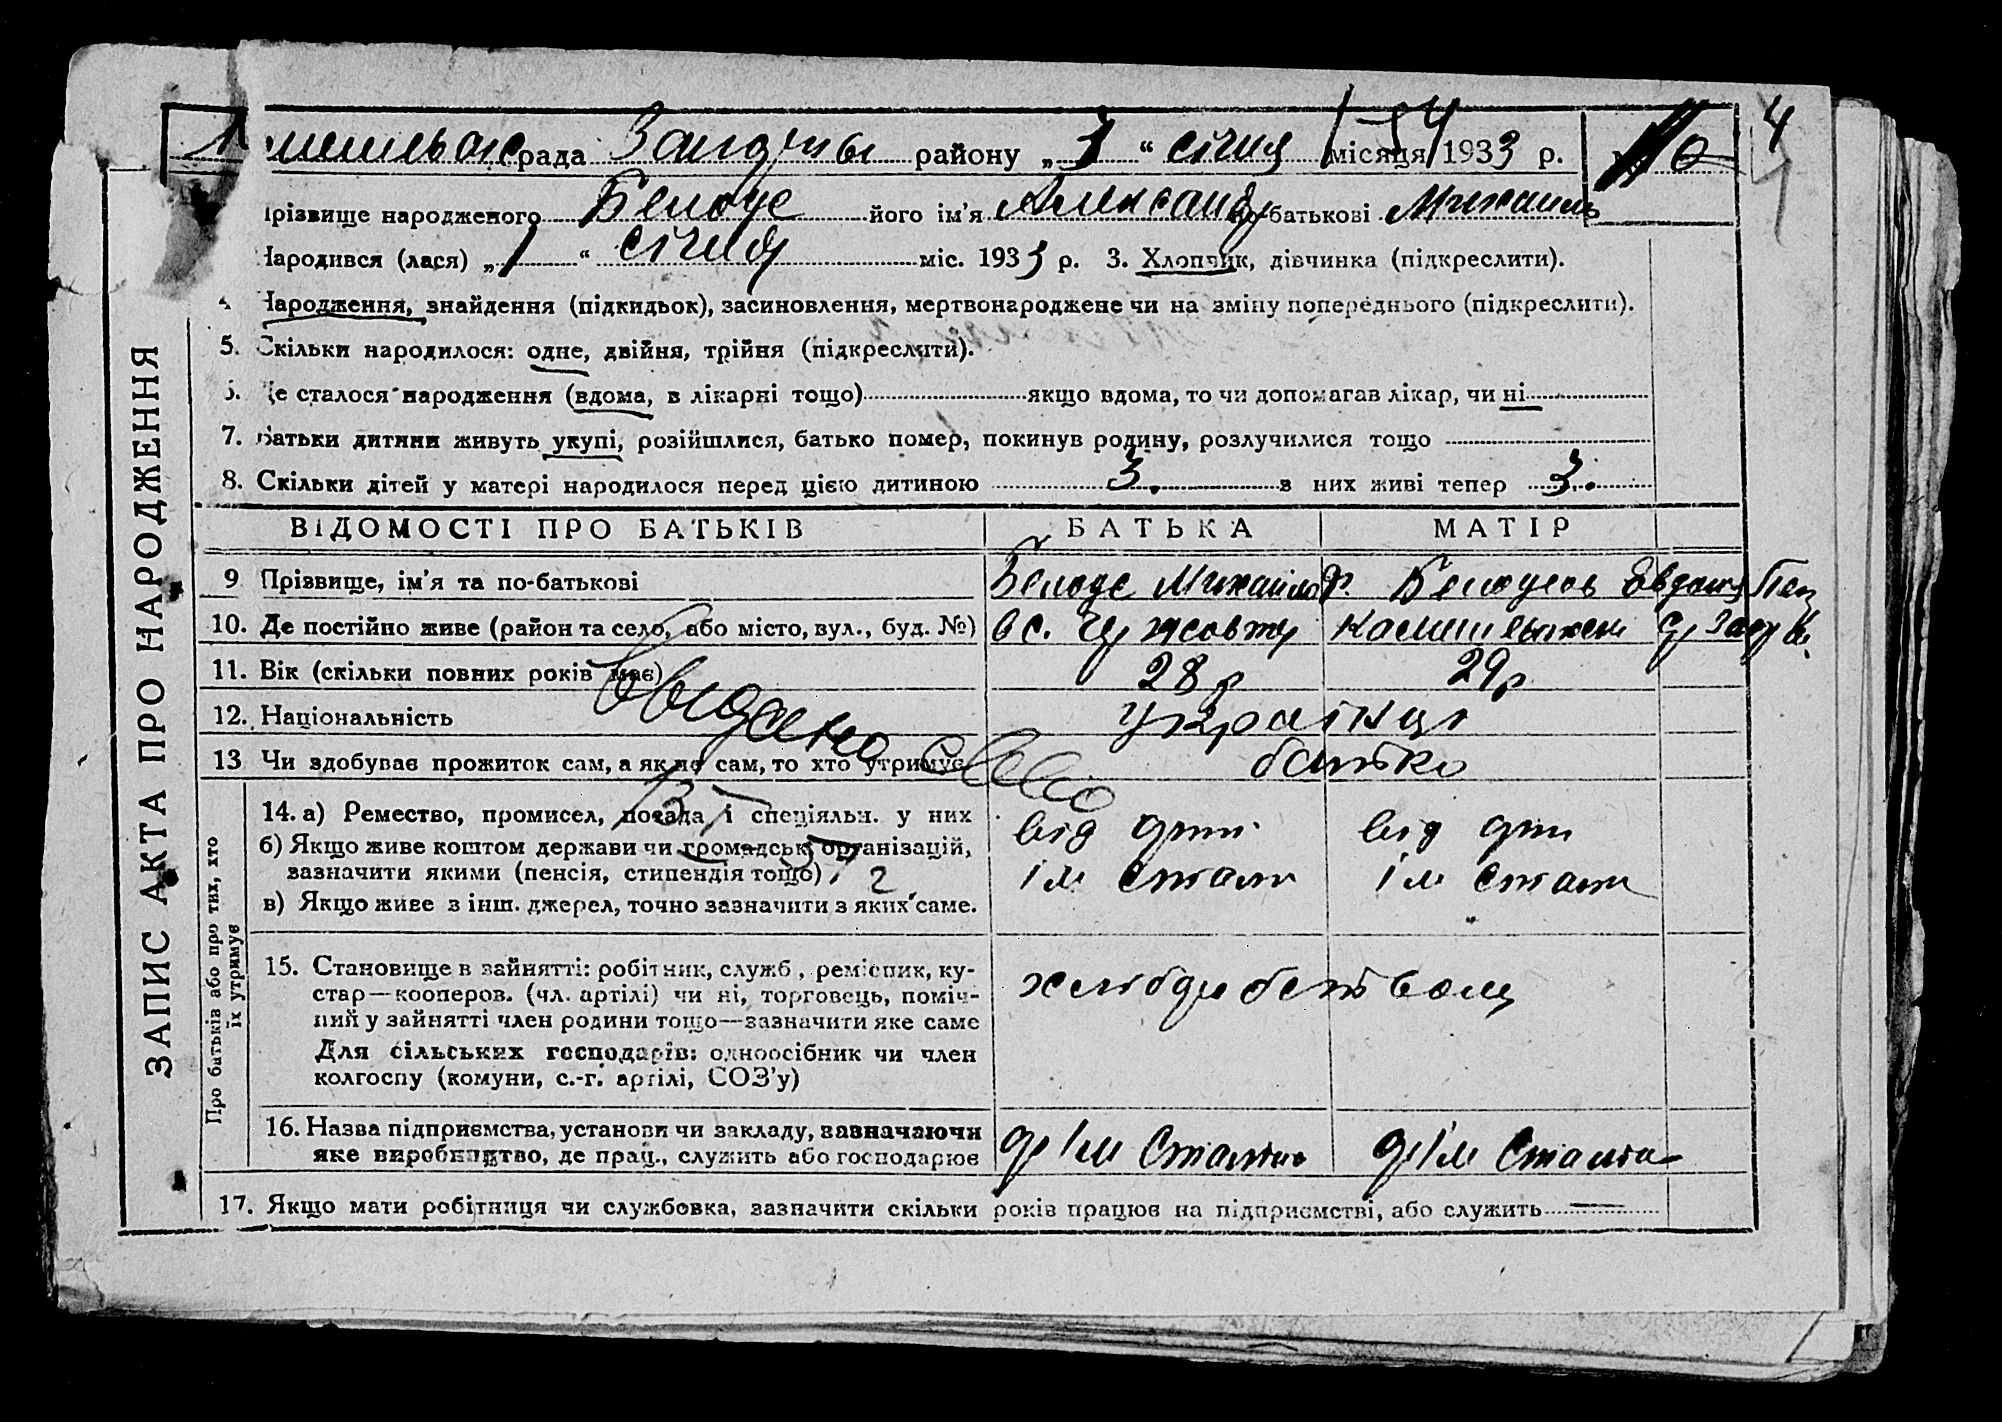 рада району „3“ січня місяця 1933 р. 4
прізвище народженого Белоус його ім'я Александр по-батькові Михаил
Народився (лася) „1“ січня міс. 1933 р. 3. Хлопчик, дівчинка (підкреслити).
Народження, знайдення (підкидьок), засиновлення, мертвонароджене чи на зміну попереднього (підкреслити).
5. Скільки народилося: одне, двійня, трійня (підкреслити).
Де сталося народження (вдома, в лікарні тощо) якщо вдома, то чи допомагав лікар, чи ні
7. Батьки дитини живуть укупі, розійшлися, батько помер, покинув родину, розлучилися тощо
8. Скільки дітей у матері народилося перед цією дитиною 3. в них живі тепер 3.
ЗАПИС АКТА ПРО НАРОДЖЕННЯ
ВІДОМОСТІ ПРО БАТЬКІВ БАТЬКА МАТІР
9 Прізвище, ім'я та по-батькові Белоус Михайло Белоусов
10. Де постійно живе (район та село, або місто, вул., буд. №) в с.
11. Вік (скільки повних років має) 28 р 29 р
12. Національність українці
13 Чи здобуває прожиток сам, а як не сам, то хто утримує батько
Про батьків або про тих, хто
їх утримує
14. а) Ремество, промисел, посада і спеціяльн. у них від від
б) Якщо живе коштом держави чи громадськ. організацій,
зазначити якими (пенсія, стипендія тощо) ім ім
в) Якщо живе з інш. джерел, точно зазначити з яких саме.
15. Становище в зайнятті: робітник, служб., ремісник, ку-
стар—кооперов. (чл. артілі) чи ні, торговець, поміч-
ний у зайнятті член родини тощо—зазначити яке саме
Для сільських господарів: одноосібник чи член
колгоспу (комуни, с.-г. артілі, СОЗ'у)
16. Назва підприємства, установи чи закладу, зазначаючи
яке виробництво, де прац., служить або господарює ім Сталіна ім Сталіна
17. Якщо мати робітниця чи службовка, зазначити скільки років працює на підприємстві, або служить